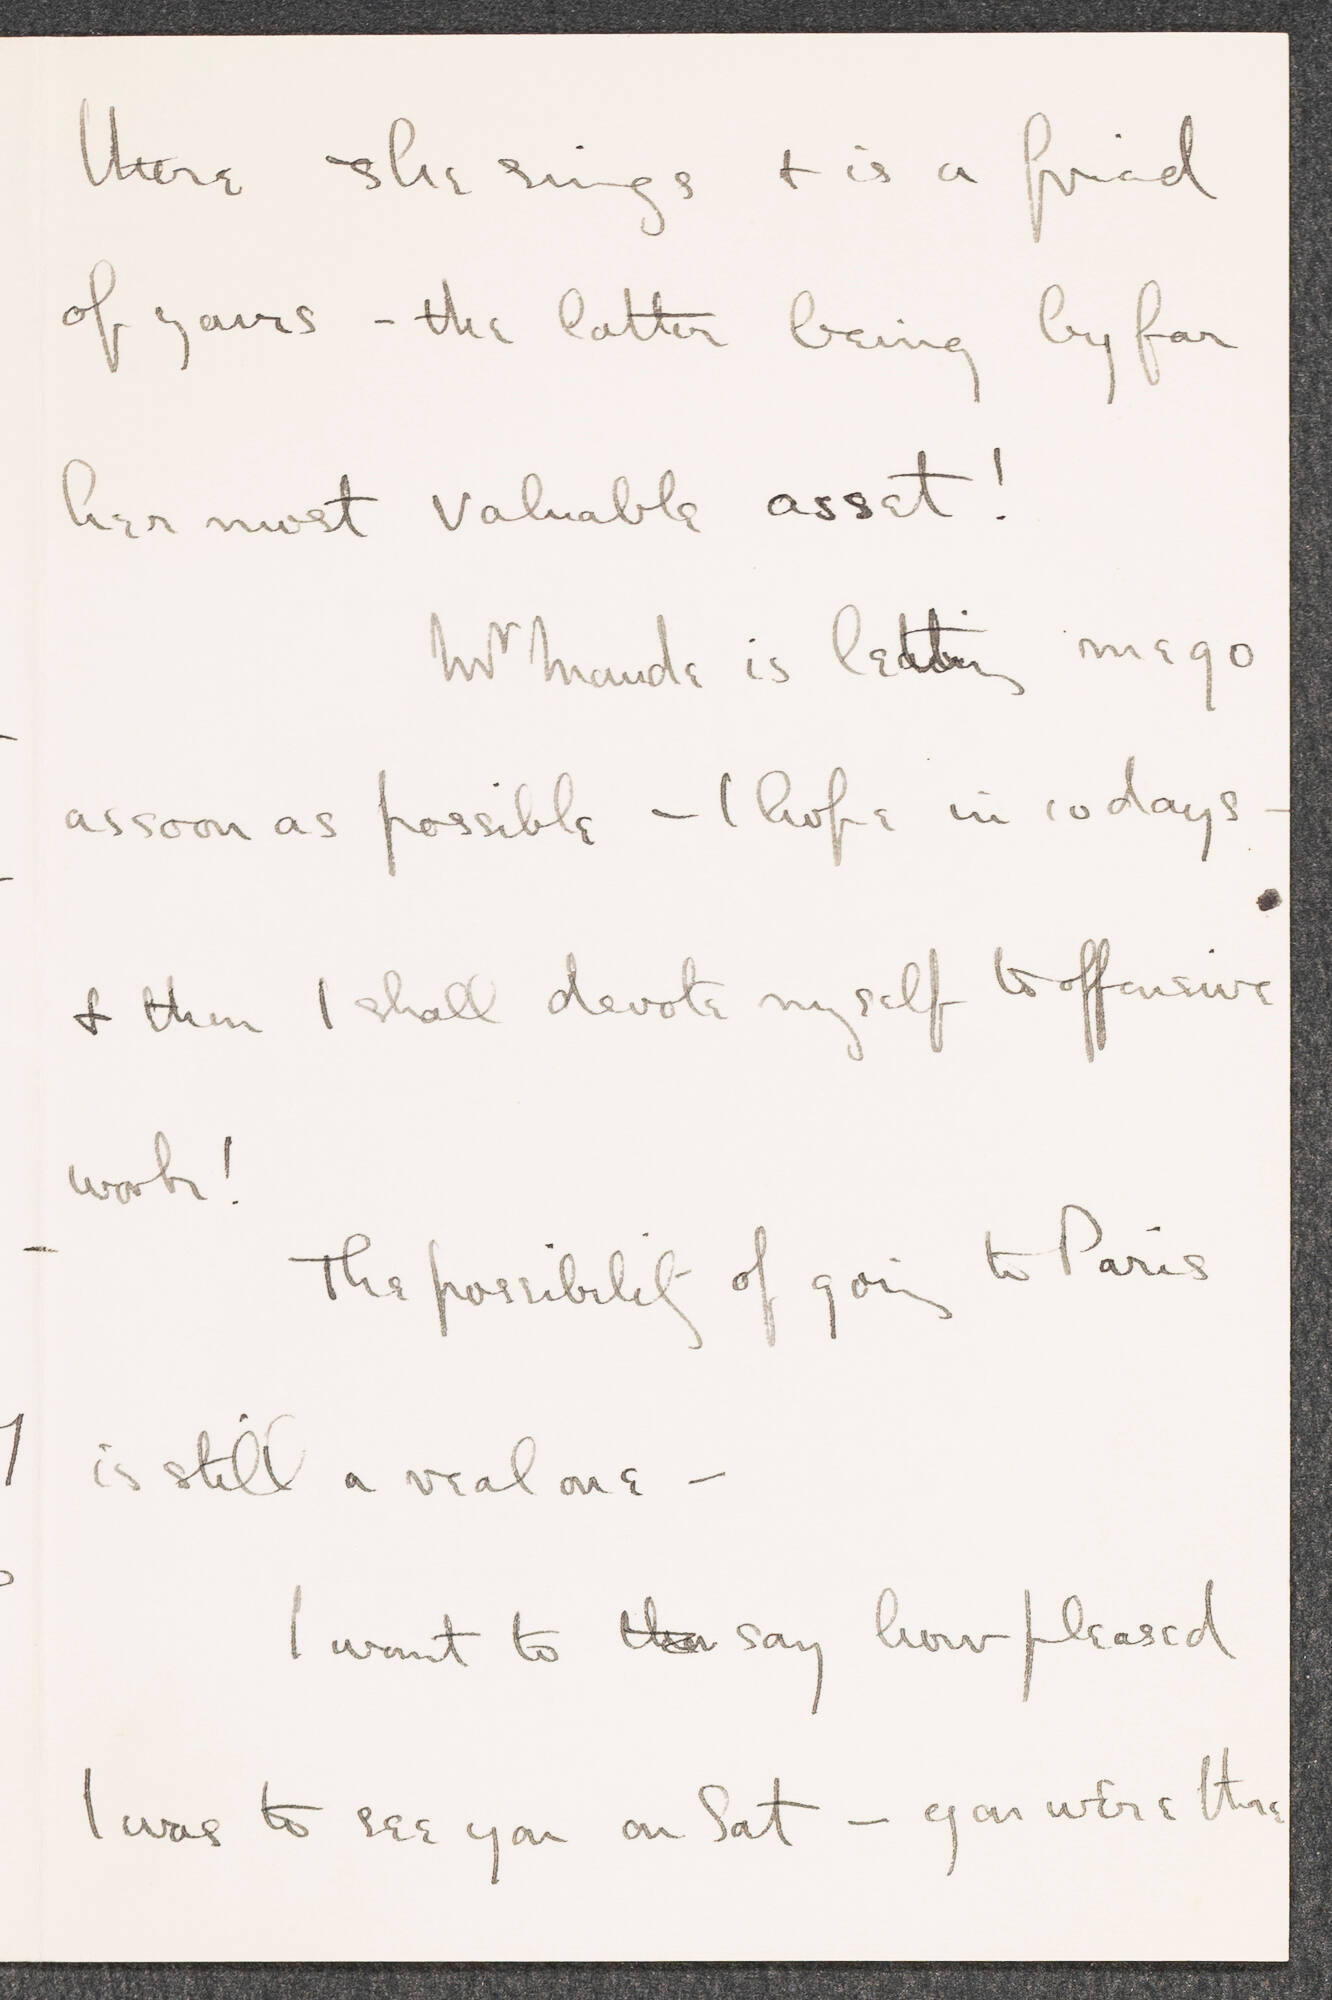 there she sings + is a friend
of yours - the latter being by far
her most valuable asset!
Mr Maude is letting me go
as soon as possible - I hope in 10 days -
& then I shall devote myself to offensive
work!
The possibility of going to Paris
is still a real one -
I want to say how pleased
I was to see you on Sat - you were there